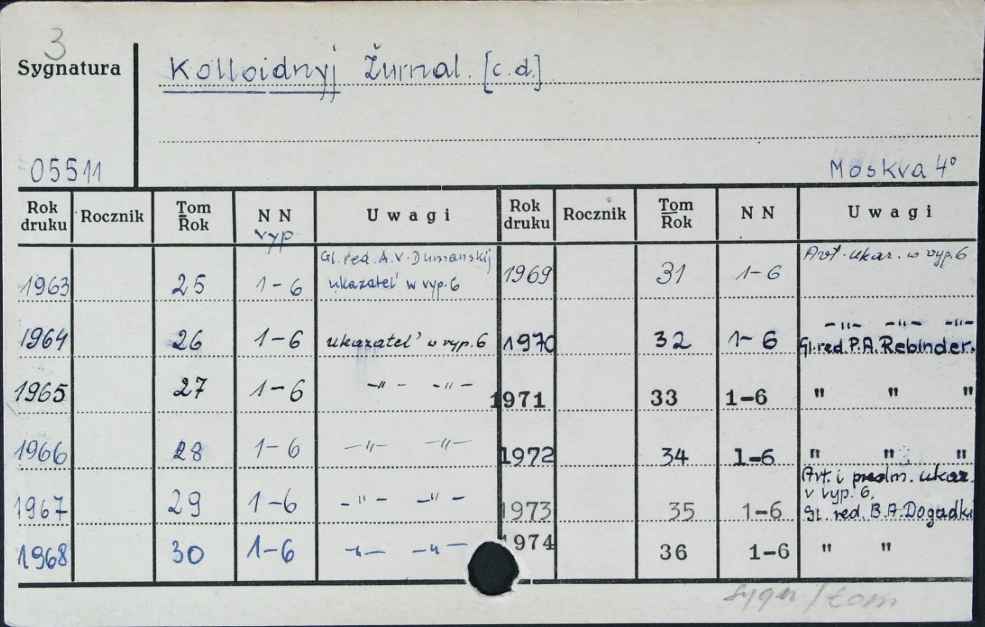 3
Sygnatura
Kolloidnyj Žurnal. [c.d.]
05511
Moskva 4°
Rok druku Rocznik Tom Rok N N vyp Uwagi Rok druku Rocznik Tom Rok N N Uwagi
1963 25 1-6 Gl. red. A.V. Dumanskij
ukazatel' w vyp. 6
1969 31 1-6 Avt. ukaz. w vyp. 6
1964 26 1-6 ukazatel' w vyp. 6
1970 32 1-6 -"- -"- -"-
Gl. red. P.A. Rebinder.
1965 27 1-6 -"- -"-
1971 33 1-6 " " "
1966 28 1-6 -"- -"-
1972 34 1-6 " " "
1967 29 1-6 -"- -"-
1973 35 1-6 Avt. i predm. ukaz.
v vyp. 6.
Gl. red. B.A. Dogadki
1968 30 1-6 -"- -"-
1974 36 1-6 " "